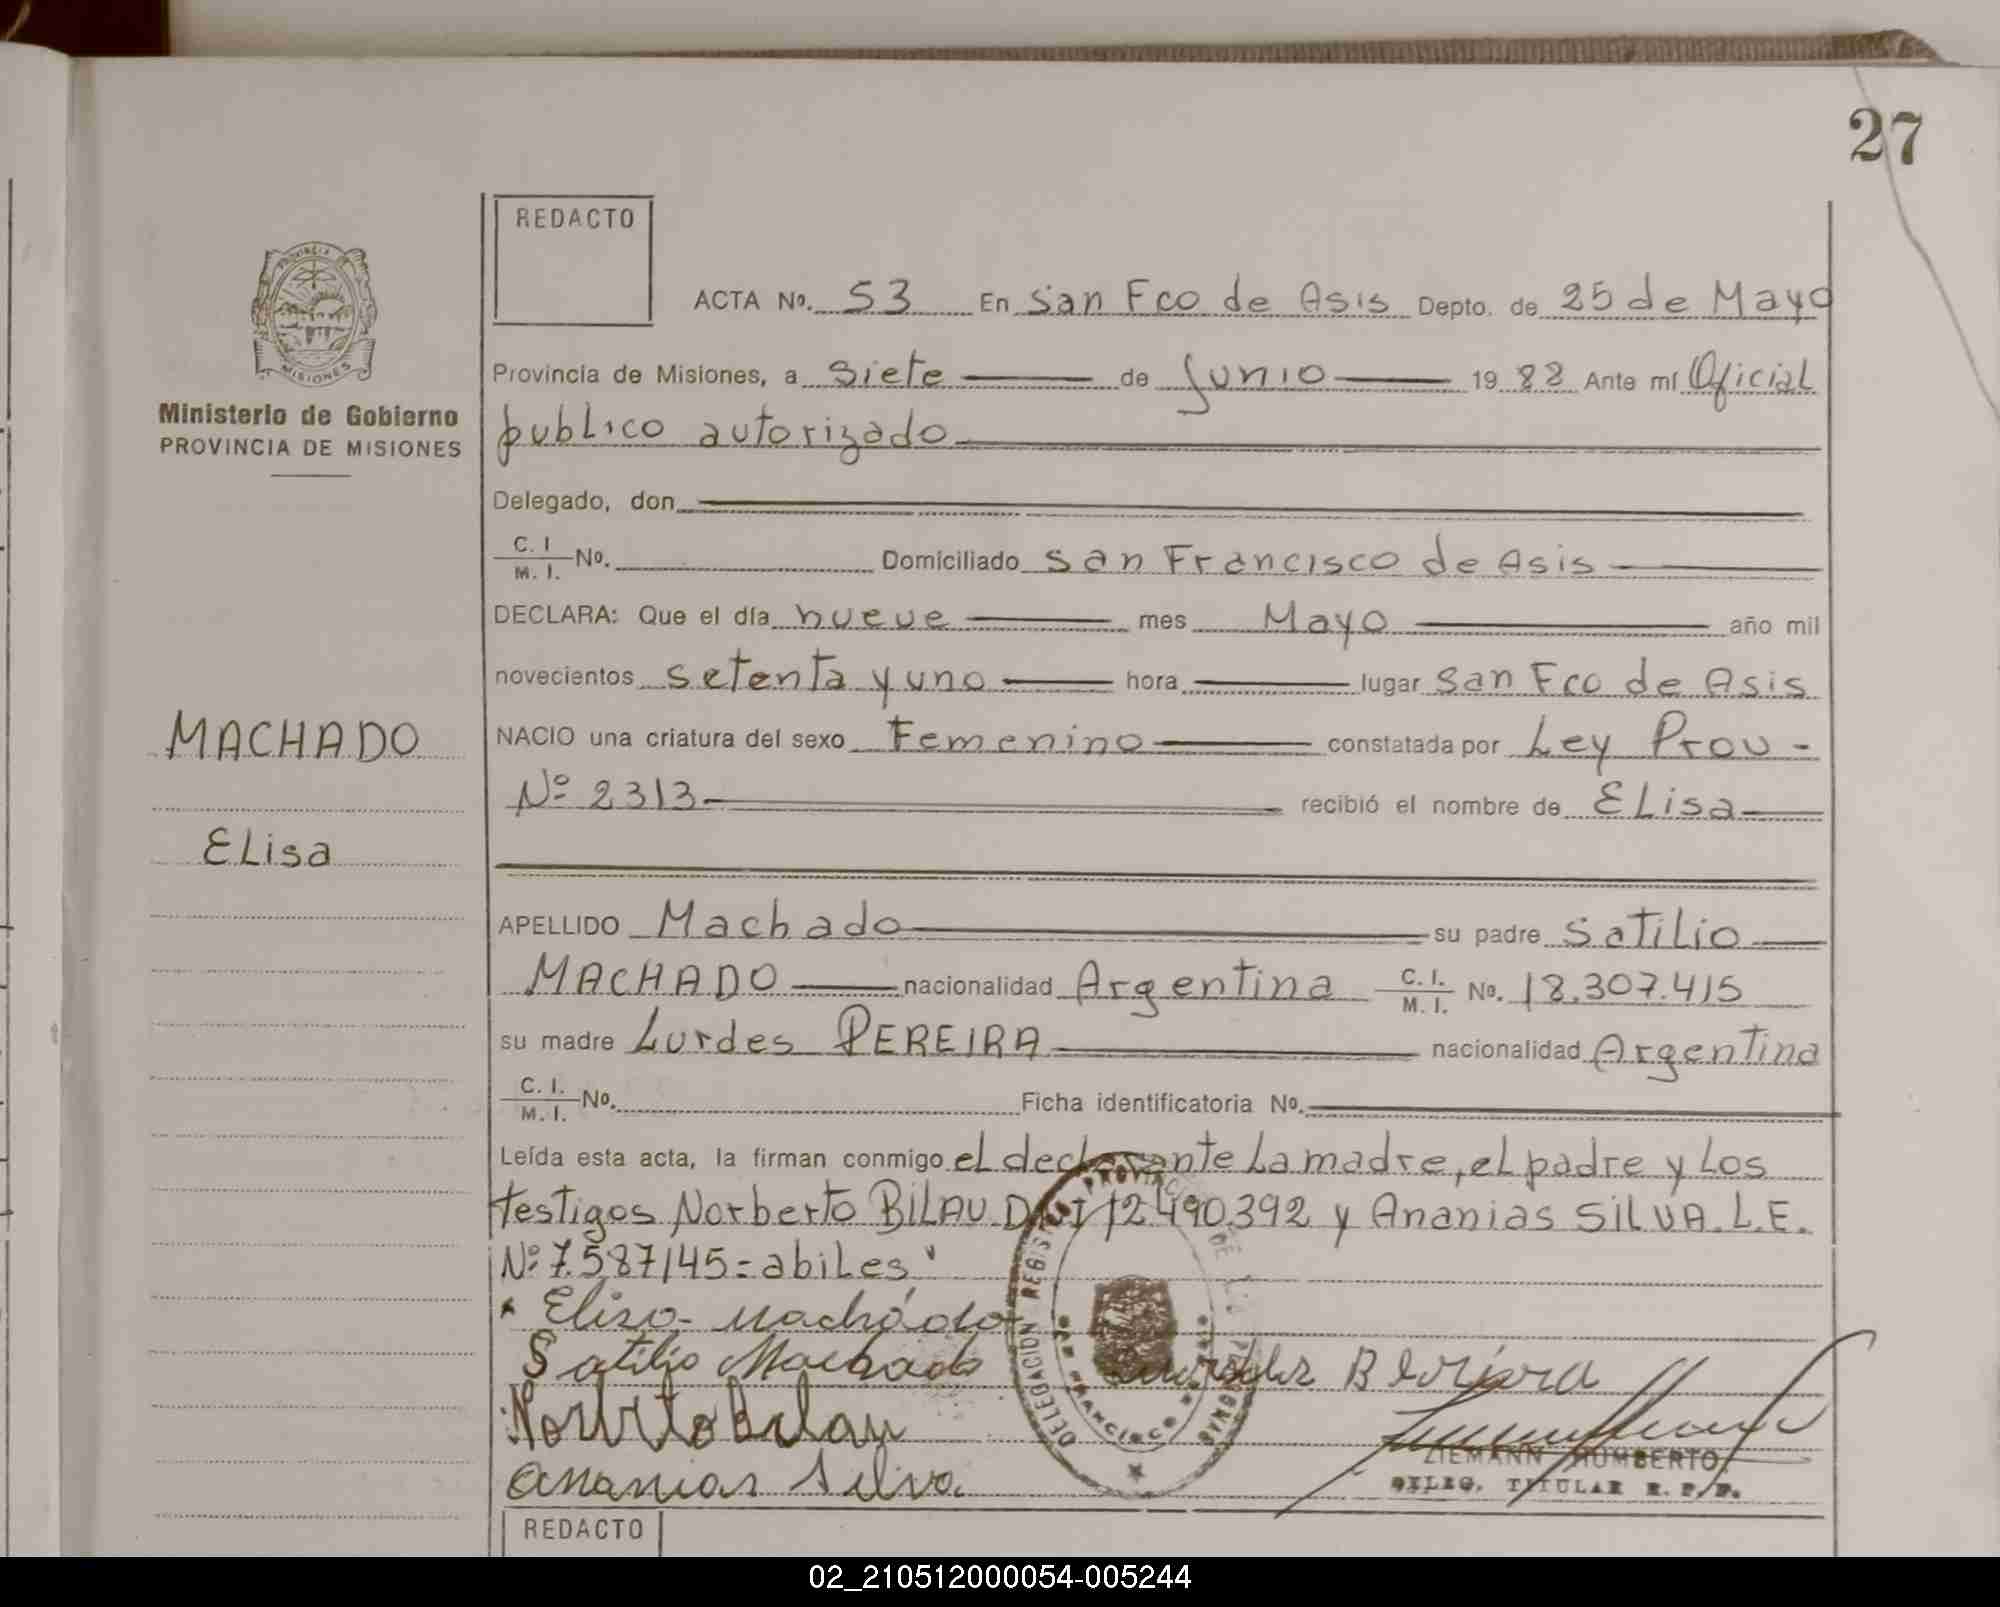 27
REDACTO
ACTA Nº. 53 En San Fco de Asis Depto. de 25 de Mayo
Provincia de Misiones, a siete de Junio 1988 Ante mí Oficial
publico autorizado
Delegado, don
C. I. / M. I. No. Domiciliado San Francisco de Asis
DECLARA: Que el día nueve mes Mayo año mil
novecientos setenta y uno hora lugar San Fco de Asis
NACIO una criatura del sexo Femenino constatada por Ley Prov -
Nº 2313 recibió el nombre de ELisa
APELLIDO Machado su padre Satilio
MACHADO nacionalidad Argentina C. I. / M. I. No. 18.307.415
su madre Lurdes PEREIRA nacionalidad Argentina
C. I. / M. I. No. Ficha identificatoria No.
Leída esta acta, la firman conmigo el declarante La madre, el padre y Los
testigos Norberto BILAU DNI 12.490.392 y Ananias SILVA. L.E.
Nº 7.587145= abiles
Elisa Machado
Satilio Machado
Norberto Bilau
Ananias Silva
ZIEMANN HUMBERTO
DELEG. TITULAR R. P. P.
DELEGACION REGISTRO PROVINCIAL DE LAS PERSONAS
SAN FRANCISCO DE ASIS
REDACTO
PROVINCIA
MISIONES
Ministerio de Gobierno
PROVINCIA DE MISIONES
MACHADO
ELisa
02_210512000054-005244